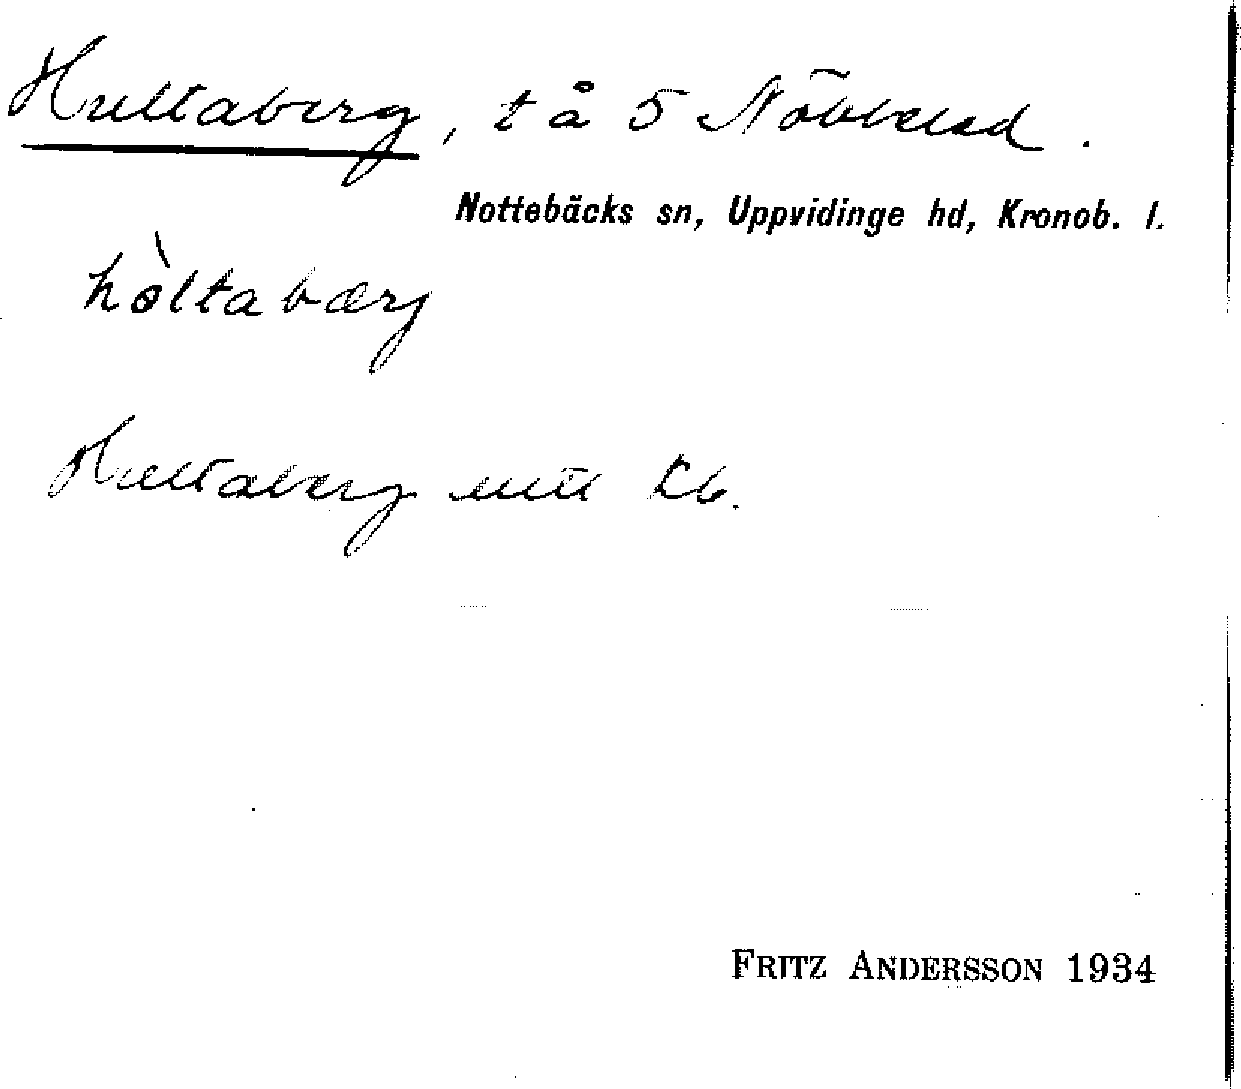 Hultaberg, t å 5 Nöbbeled.
Nottebäcks sn, Uppvidinge hd, Kronob. l.
hòltabærg
Hultaberg utt Kb.
FRITZ ANDERSSON 1934